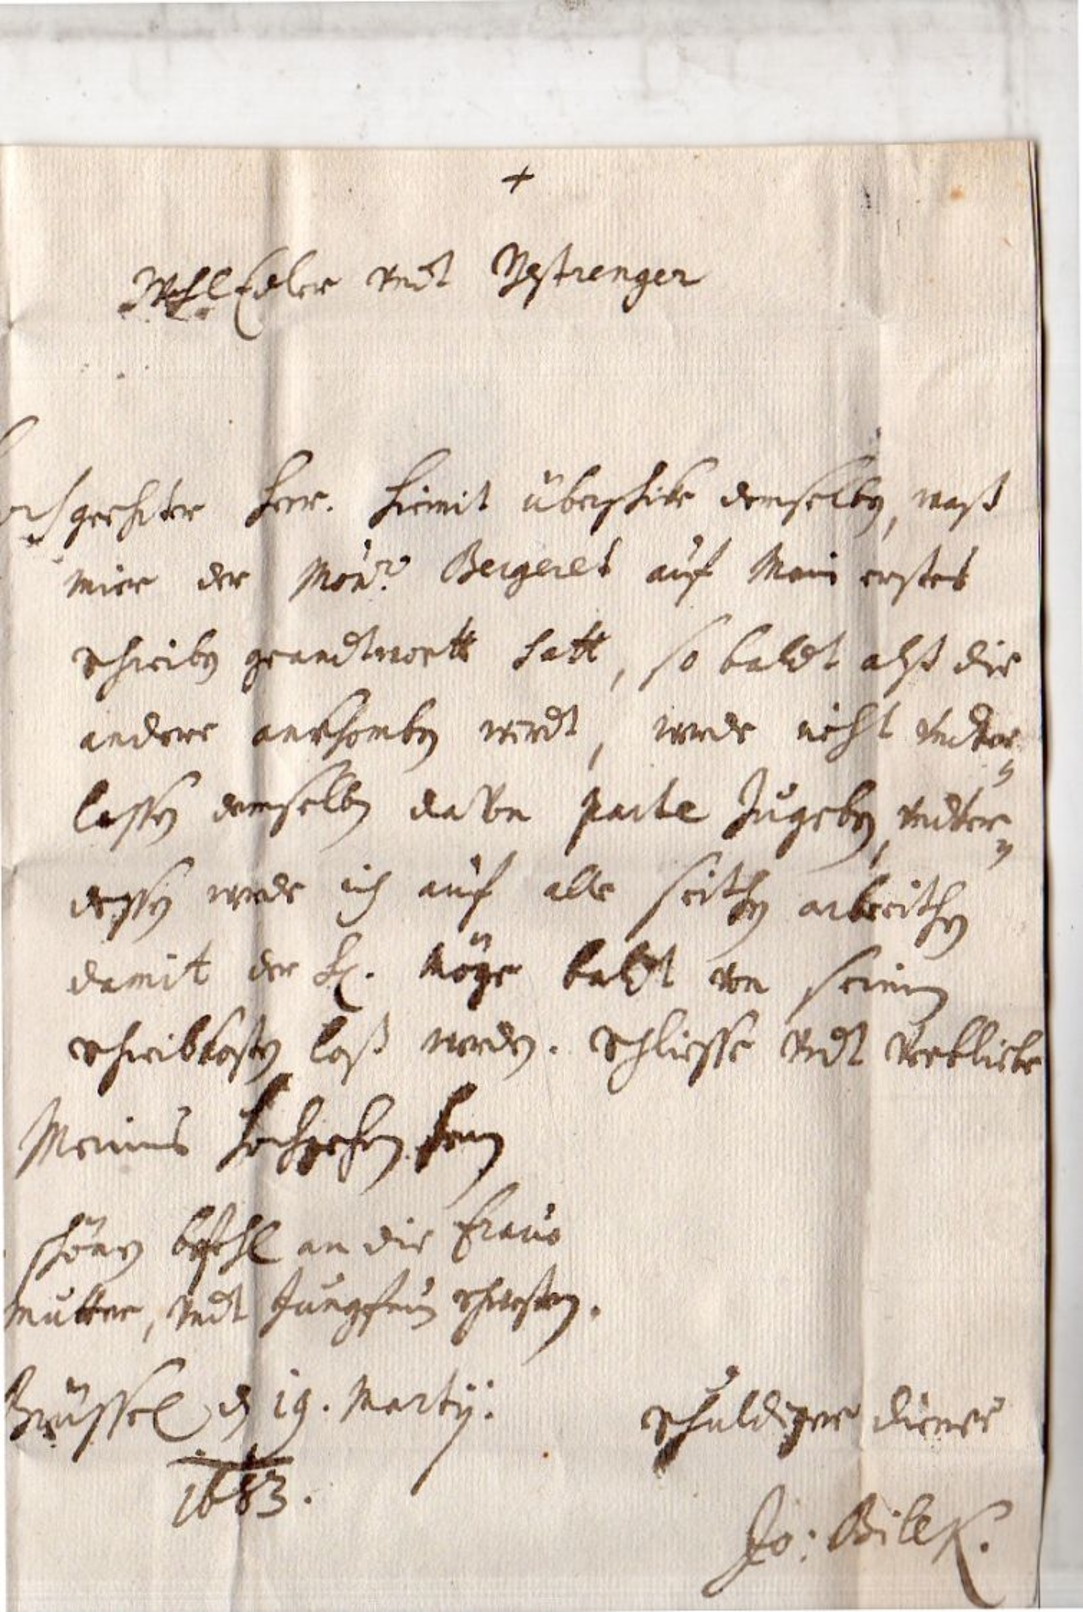 +
WohlEdler vndt Gestrenger
Hochgeehrter Herr. Hiemit überschike demselben, waß
mier der Monr. Bergeret auf Mein erstes
schreiben geandtwortt hatt, so baldt alß die
andere ankhomben wirdt, werde nicht vndter
lassen demselben davon parte Zugeben, vndter
dessen werde ich auf alle seithen arbeithen
damit der H. möge baldt von seinen
schreibkosten loß werden. Schliesse vndt verbliebe
Meines Hochgeehrn Herrn
schönen befehl an die Fraw
Mutter, vndt Jungfrau schwestern.
Brüssel d 19. Martij.
1683.
schuldiger diener
Jo: Bille